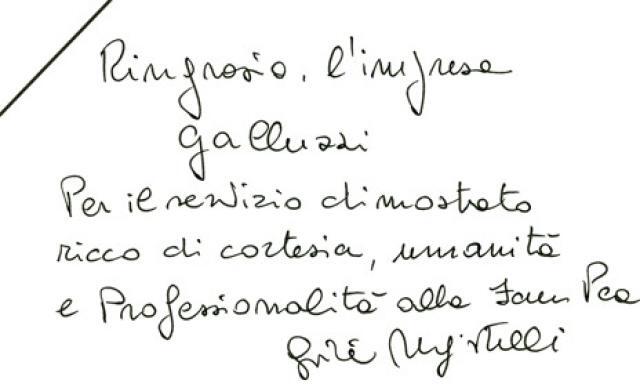 Ringrazio. l'impresa
Galluzzi
Per il servizio dimostrato
ricco di cortesia, umanità
e Professionalità alla Fam